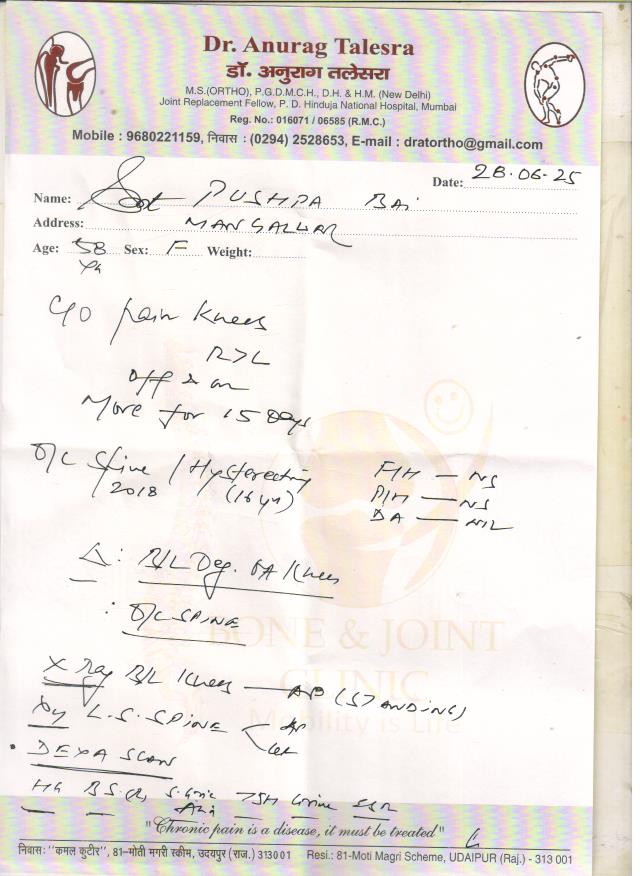 Dr. Anurag Talesra
डॉ. अनुराग तलेसरा
M.S.(ORTHO), P.G.D.M.C.H., D.H. & H.M. (New Delhi)
Joint Replacement Fellow, P. D. Hinduja National Hospital, Mumbai
Reg. No.: 016071 / 06585 (R.M.C.)
Mobile : 9680221159, निवास : (0294) 2528653, E-mail : dratortho@gmail.com
Date: 28.06.25
Name: PUSHPA BAI
Address: MANGALWAR
Age: 58 Sex: F Weight:
Yrs
C/O Pain Knees
R>L
Off & on
More for 15 Days
O/C Spine / Hysterectomy
2018 (16 yrs)
F/H — NS
P/H — NS
DA — NIL
Δ: B/L Deg. OA Knees
: O/C SPINE
BONE & JOINT
CLINIC
Mobility is Life
X Ray B/L Knees — AP (STANDING)
L.S. SPINE < AP
Lat
• DEXA SCAN
HG BS (R) S. Uric TSH Urine ESR
Acid
"Chronic pain is a disease, it must be treated"
निवास: "कमल कुटीर", 81-मोती मगरी स्कीम, उदयपुर (राज.) 313001 Resi.: 81-Moti Magri Scheme, UDAIPUR (Raj.) - 313 001